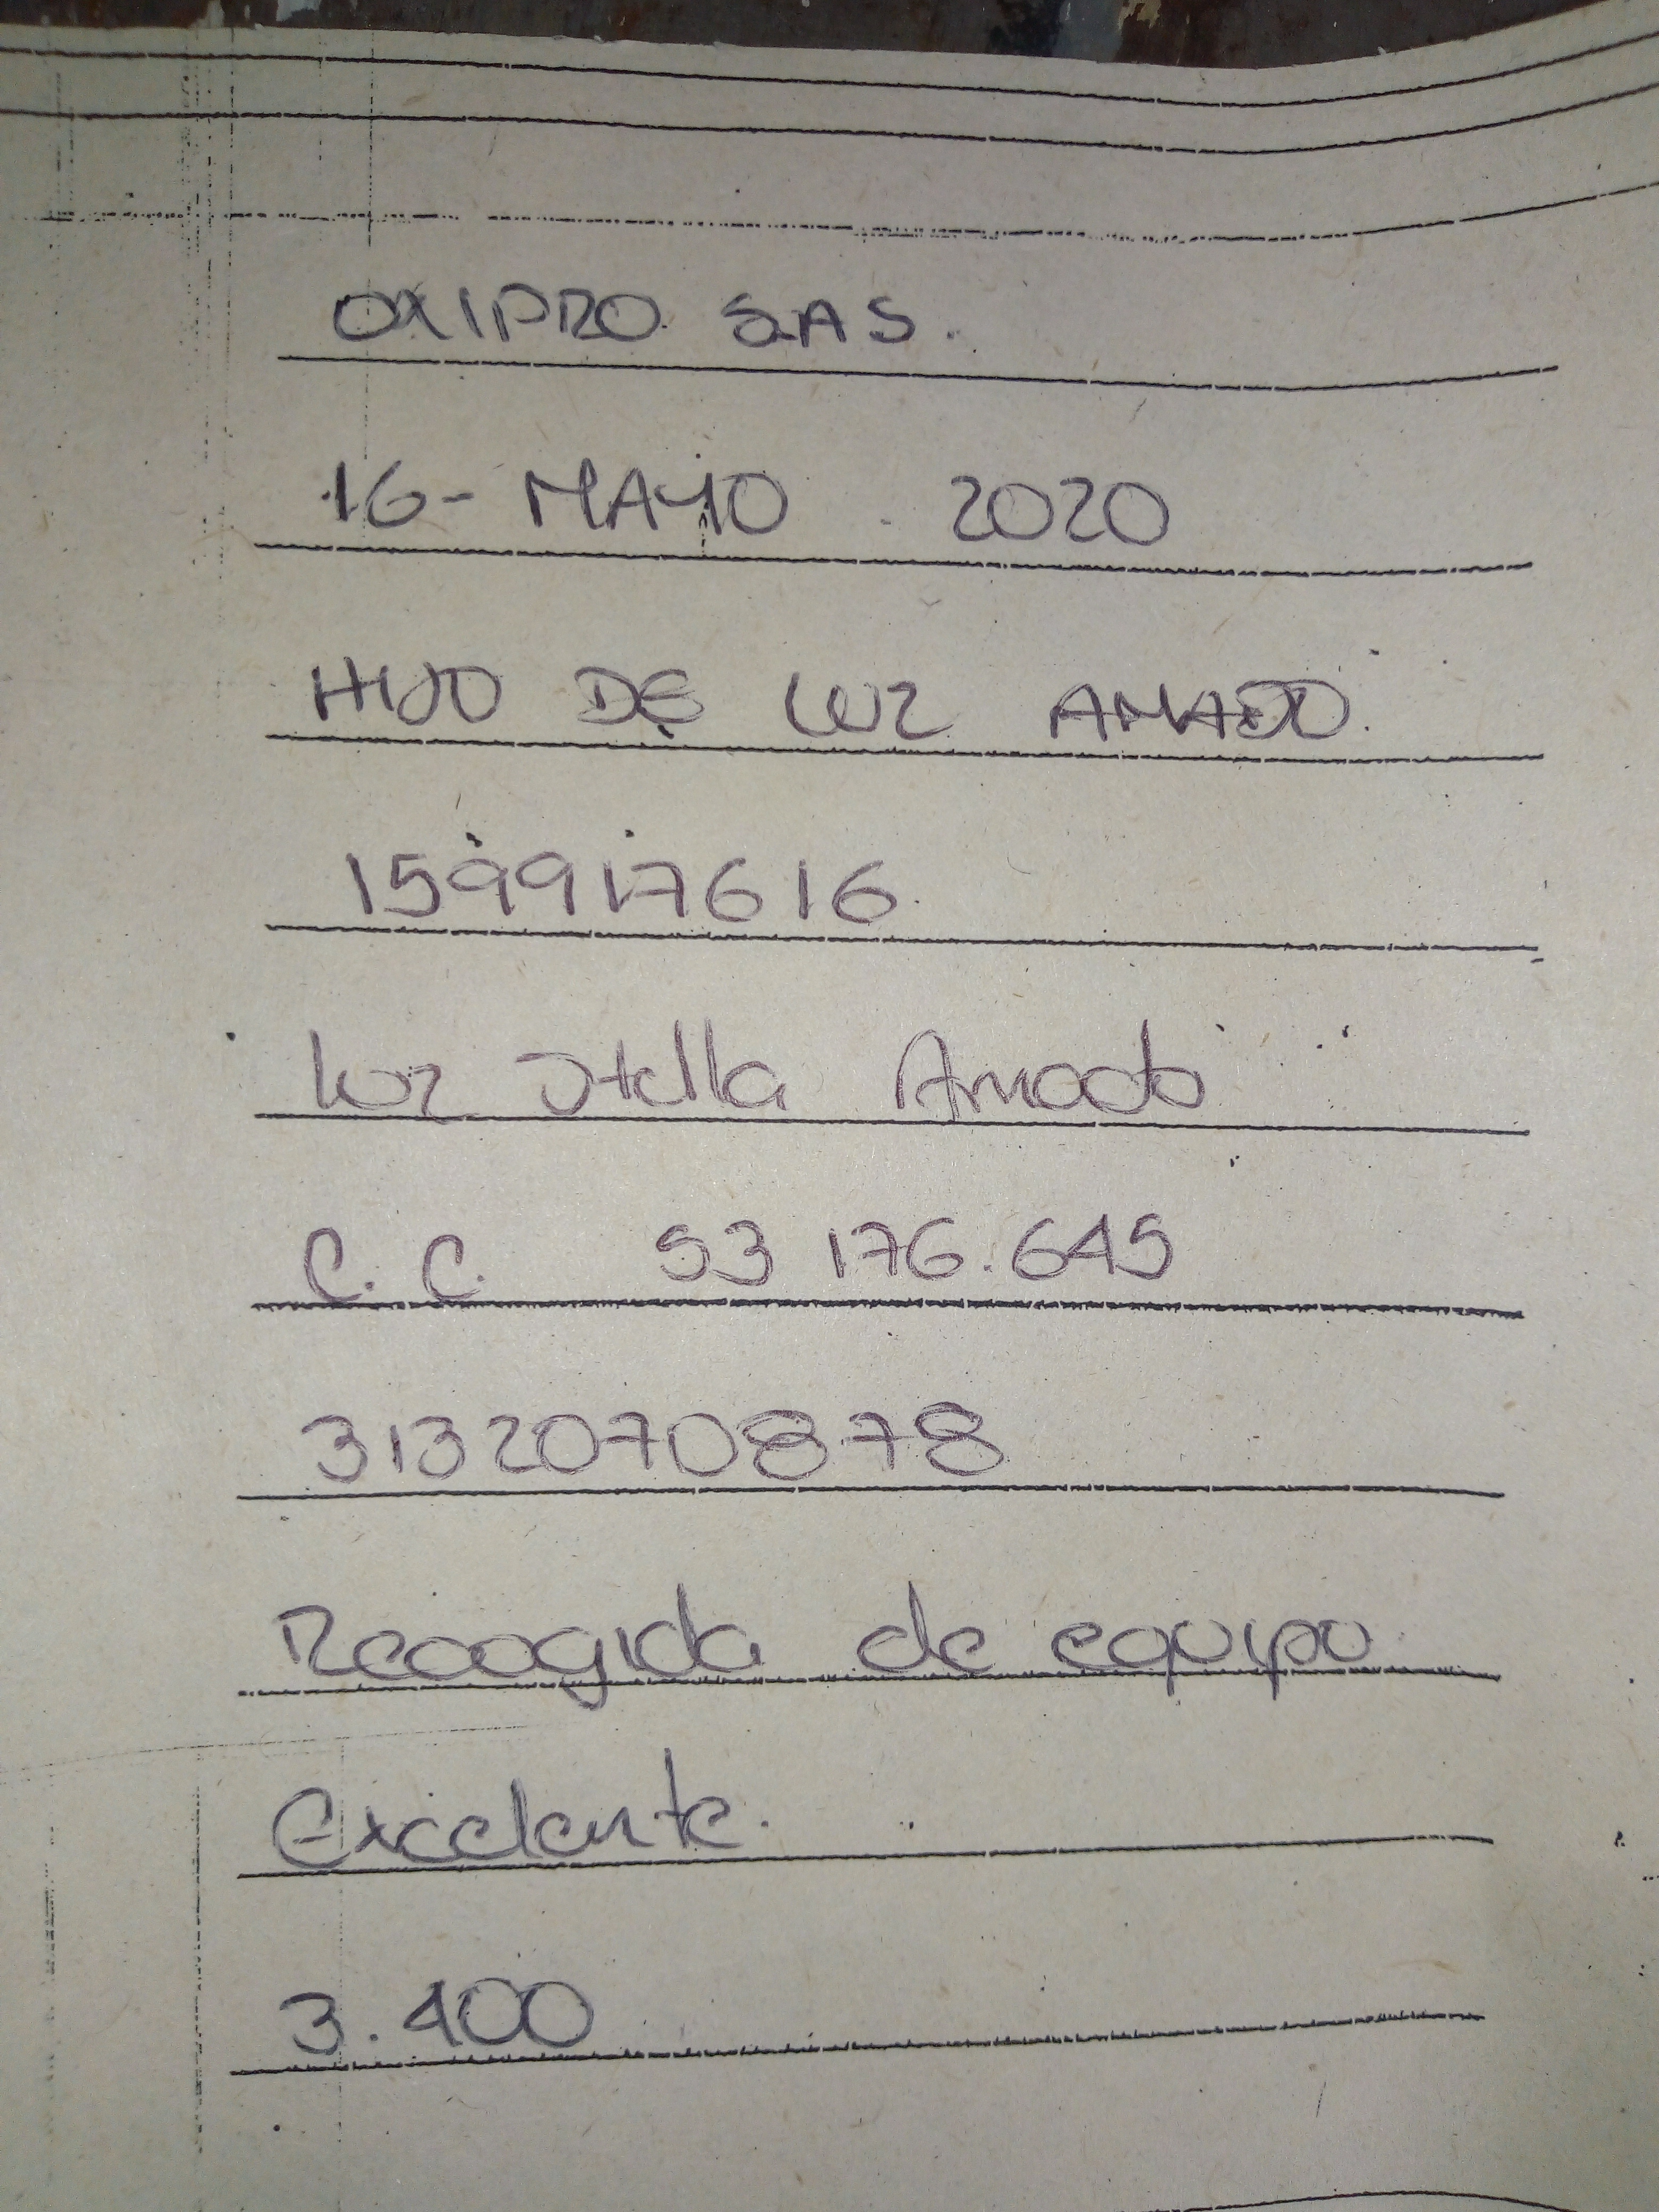 OXIPRO SAS.
16- MAYO . 2020
HIJO DE LUZ AMADO.
159917616.
Luz Stella Amado
C.C. 53 176.645
3132070878
Recogida de equipo
Excelente.
3.400